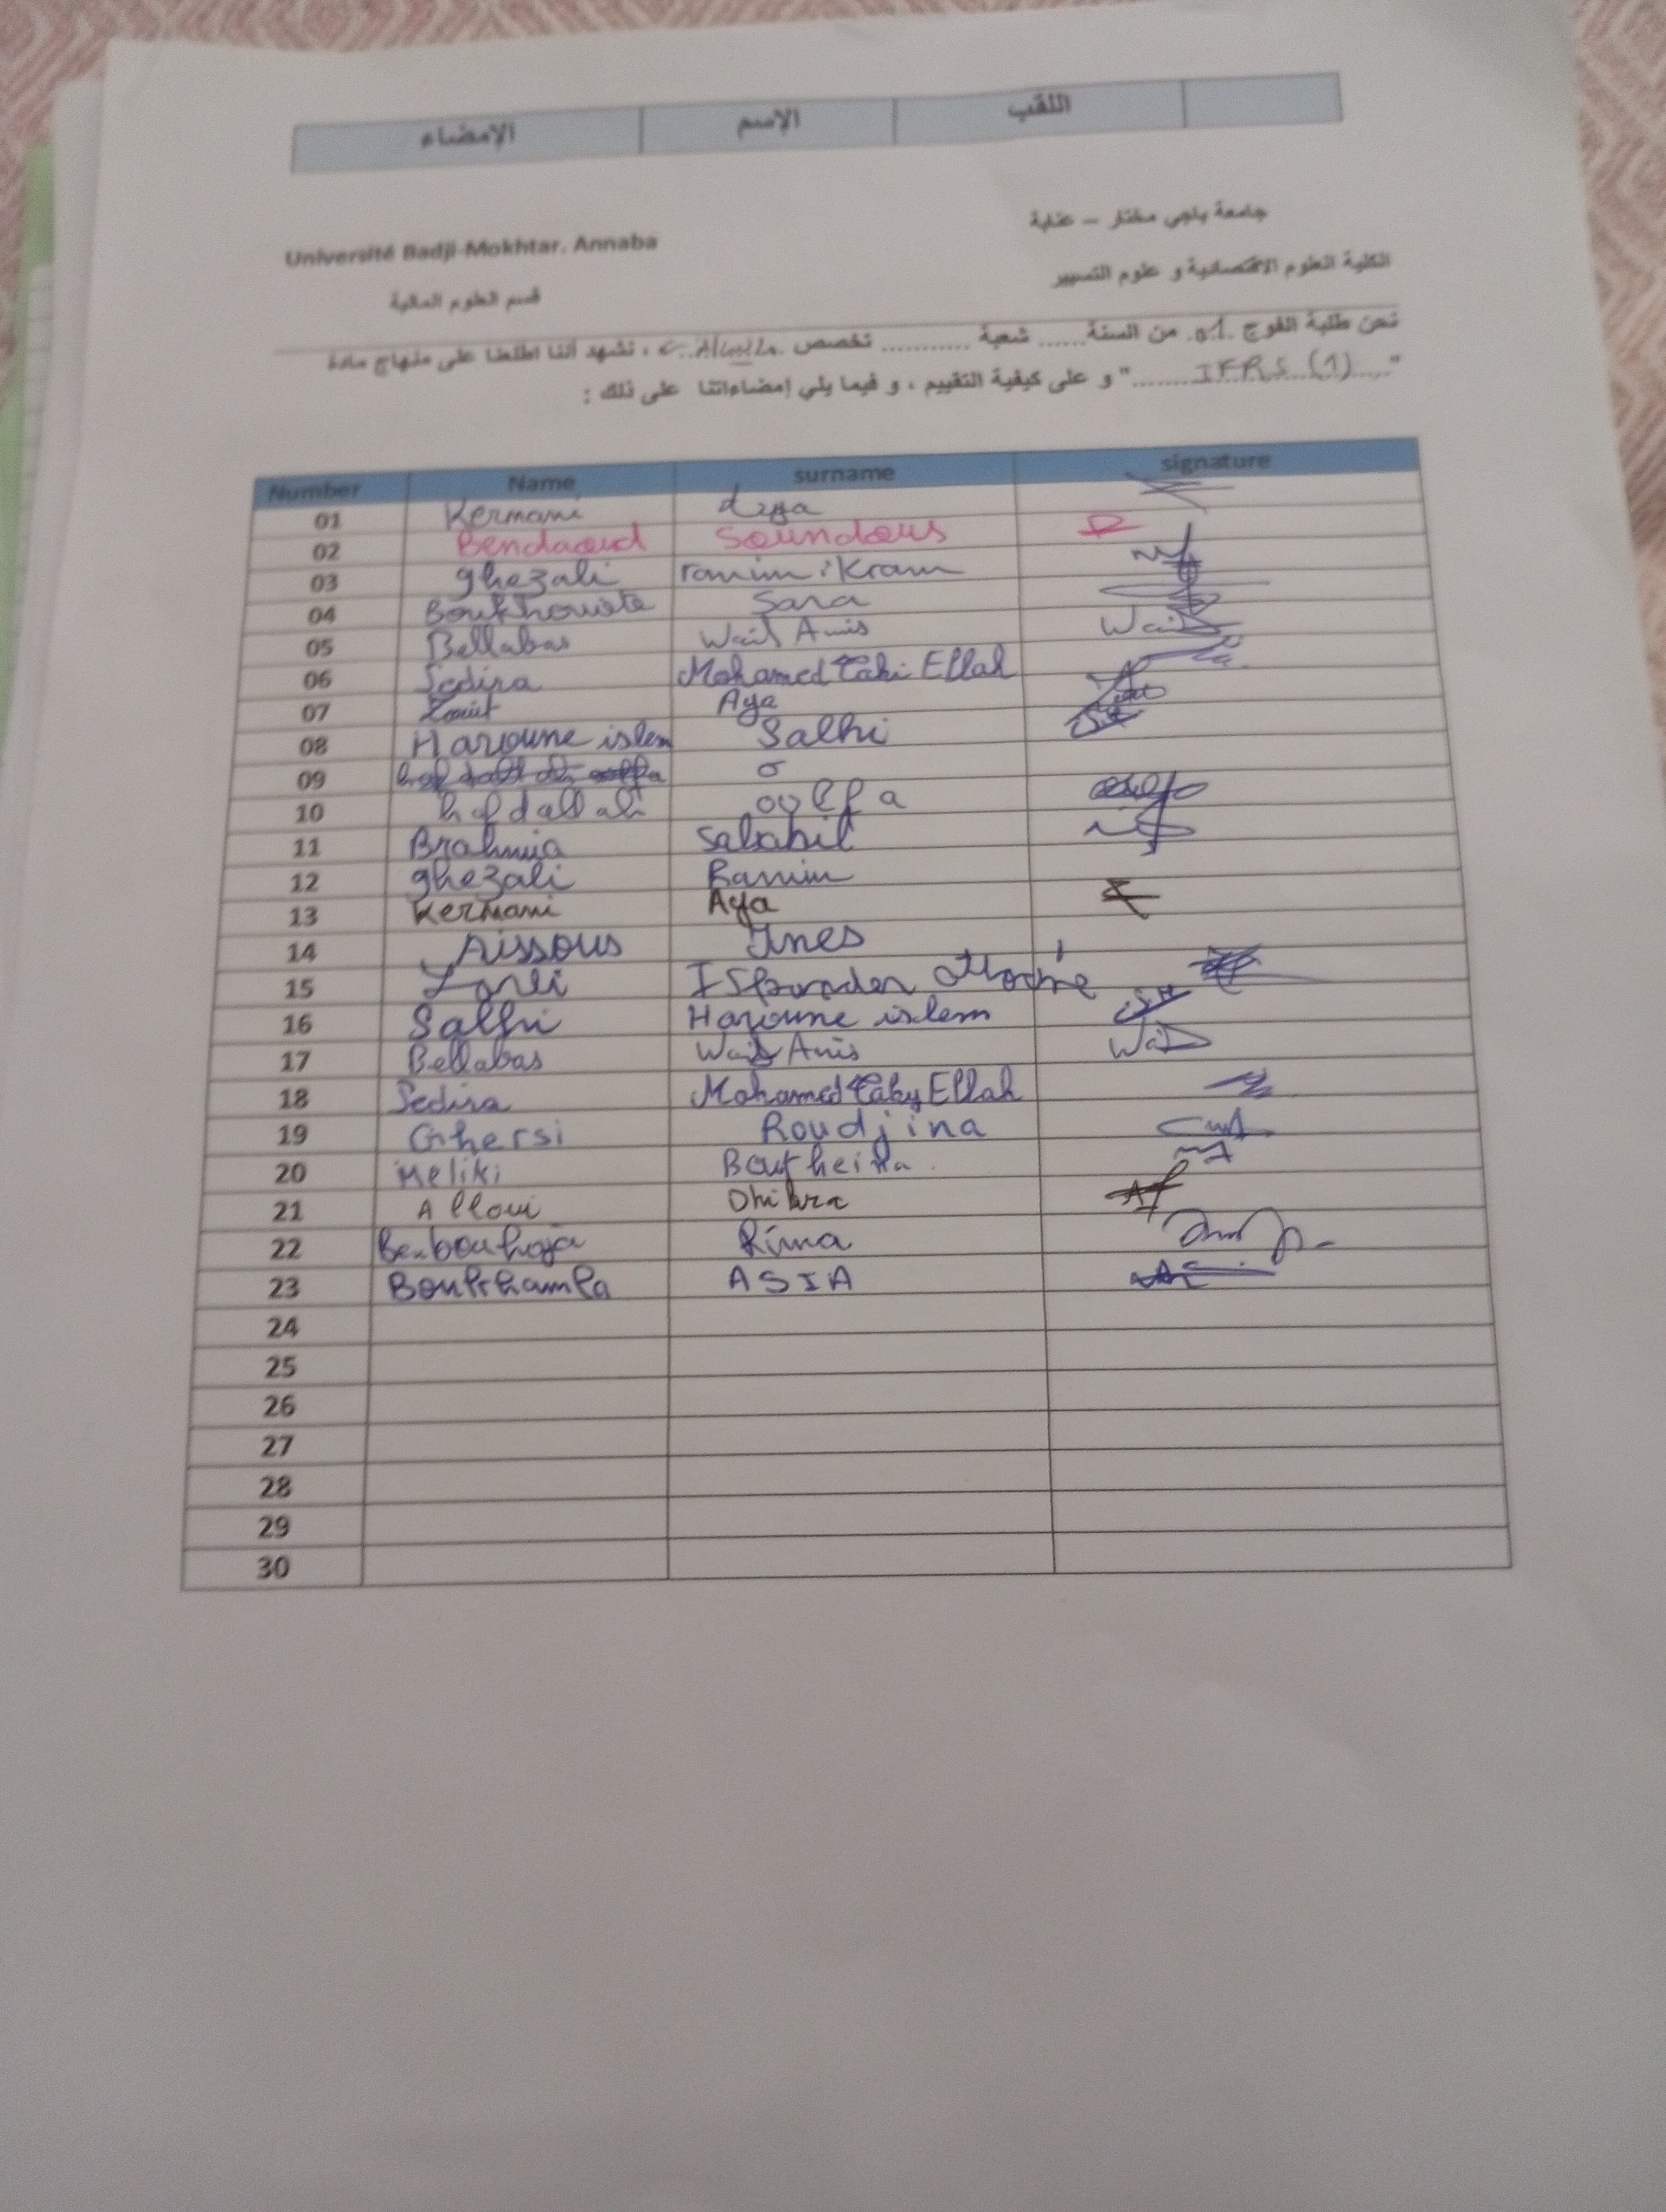 اللقب الإسم الإمضاء
جامعة باجي مختار – عنابة Université Badji-Mokhtar. Annaba
الكلية العلوم الاقتصادية و علوم التسيير قسم العلوم المالية
نحن طلبة الفوج 01. من السنة...... شعبة ........... تخصص ، نشهد أننا اطلعنا على منهاج مادة
"........IFRS (1)....." و على كيفية التقييم ، و فيما يلي إمضاءاتنا على ذلك :
Number Name surname signature
01 Kermani
02 Bendaoud Soundous
03 ghezali ranim ikram
04 Sara
05 Bellabas Wail Anis Wail
06 Sedira Mohamed Taki Ellah
07 Aya
08 Haroune islem Salhi
09
10 oulfa
11 Brahmia Salsabil
12 ghezali Ranim
13 Kermani Aya
14 Aissous Ines
15
16 Salhi Haroune islem
17 Bellabas Wail Anis Wail
18 Sedira Mohamed Taky Ellah
19 Ghersi Roudjina
20 Meliki Boutheina.
21 Alloui Dhikra
22 Rima
23 ASIA
24
25
26
27
28
29
30